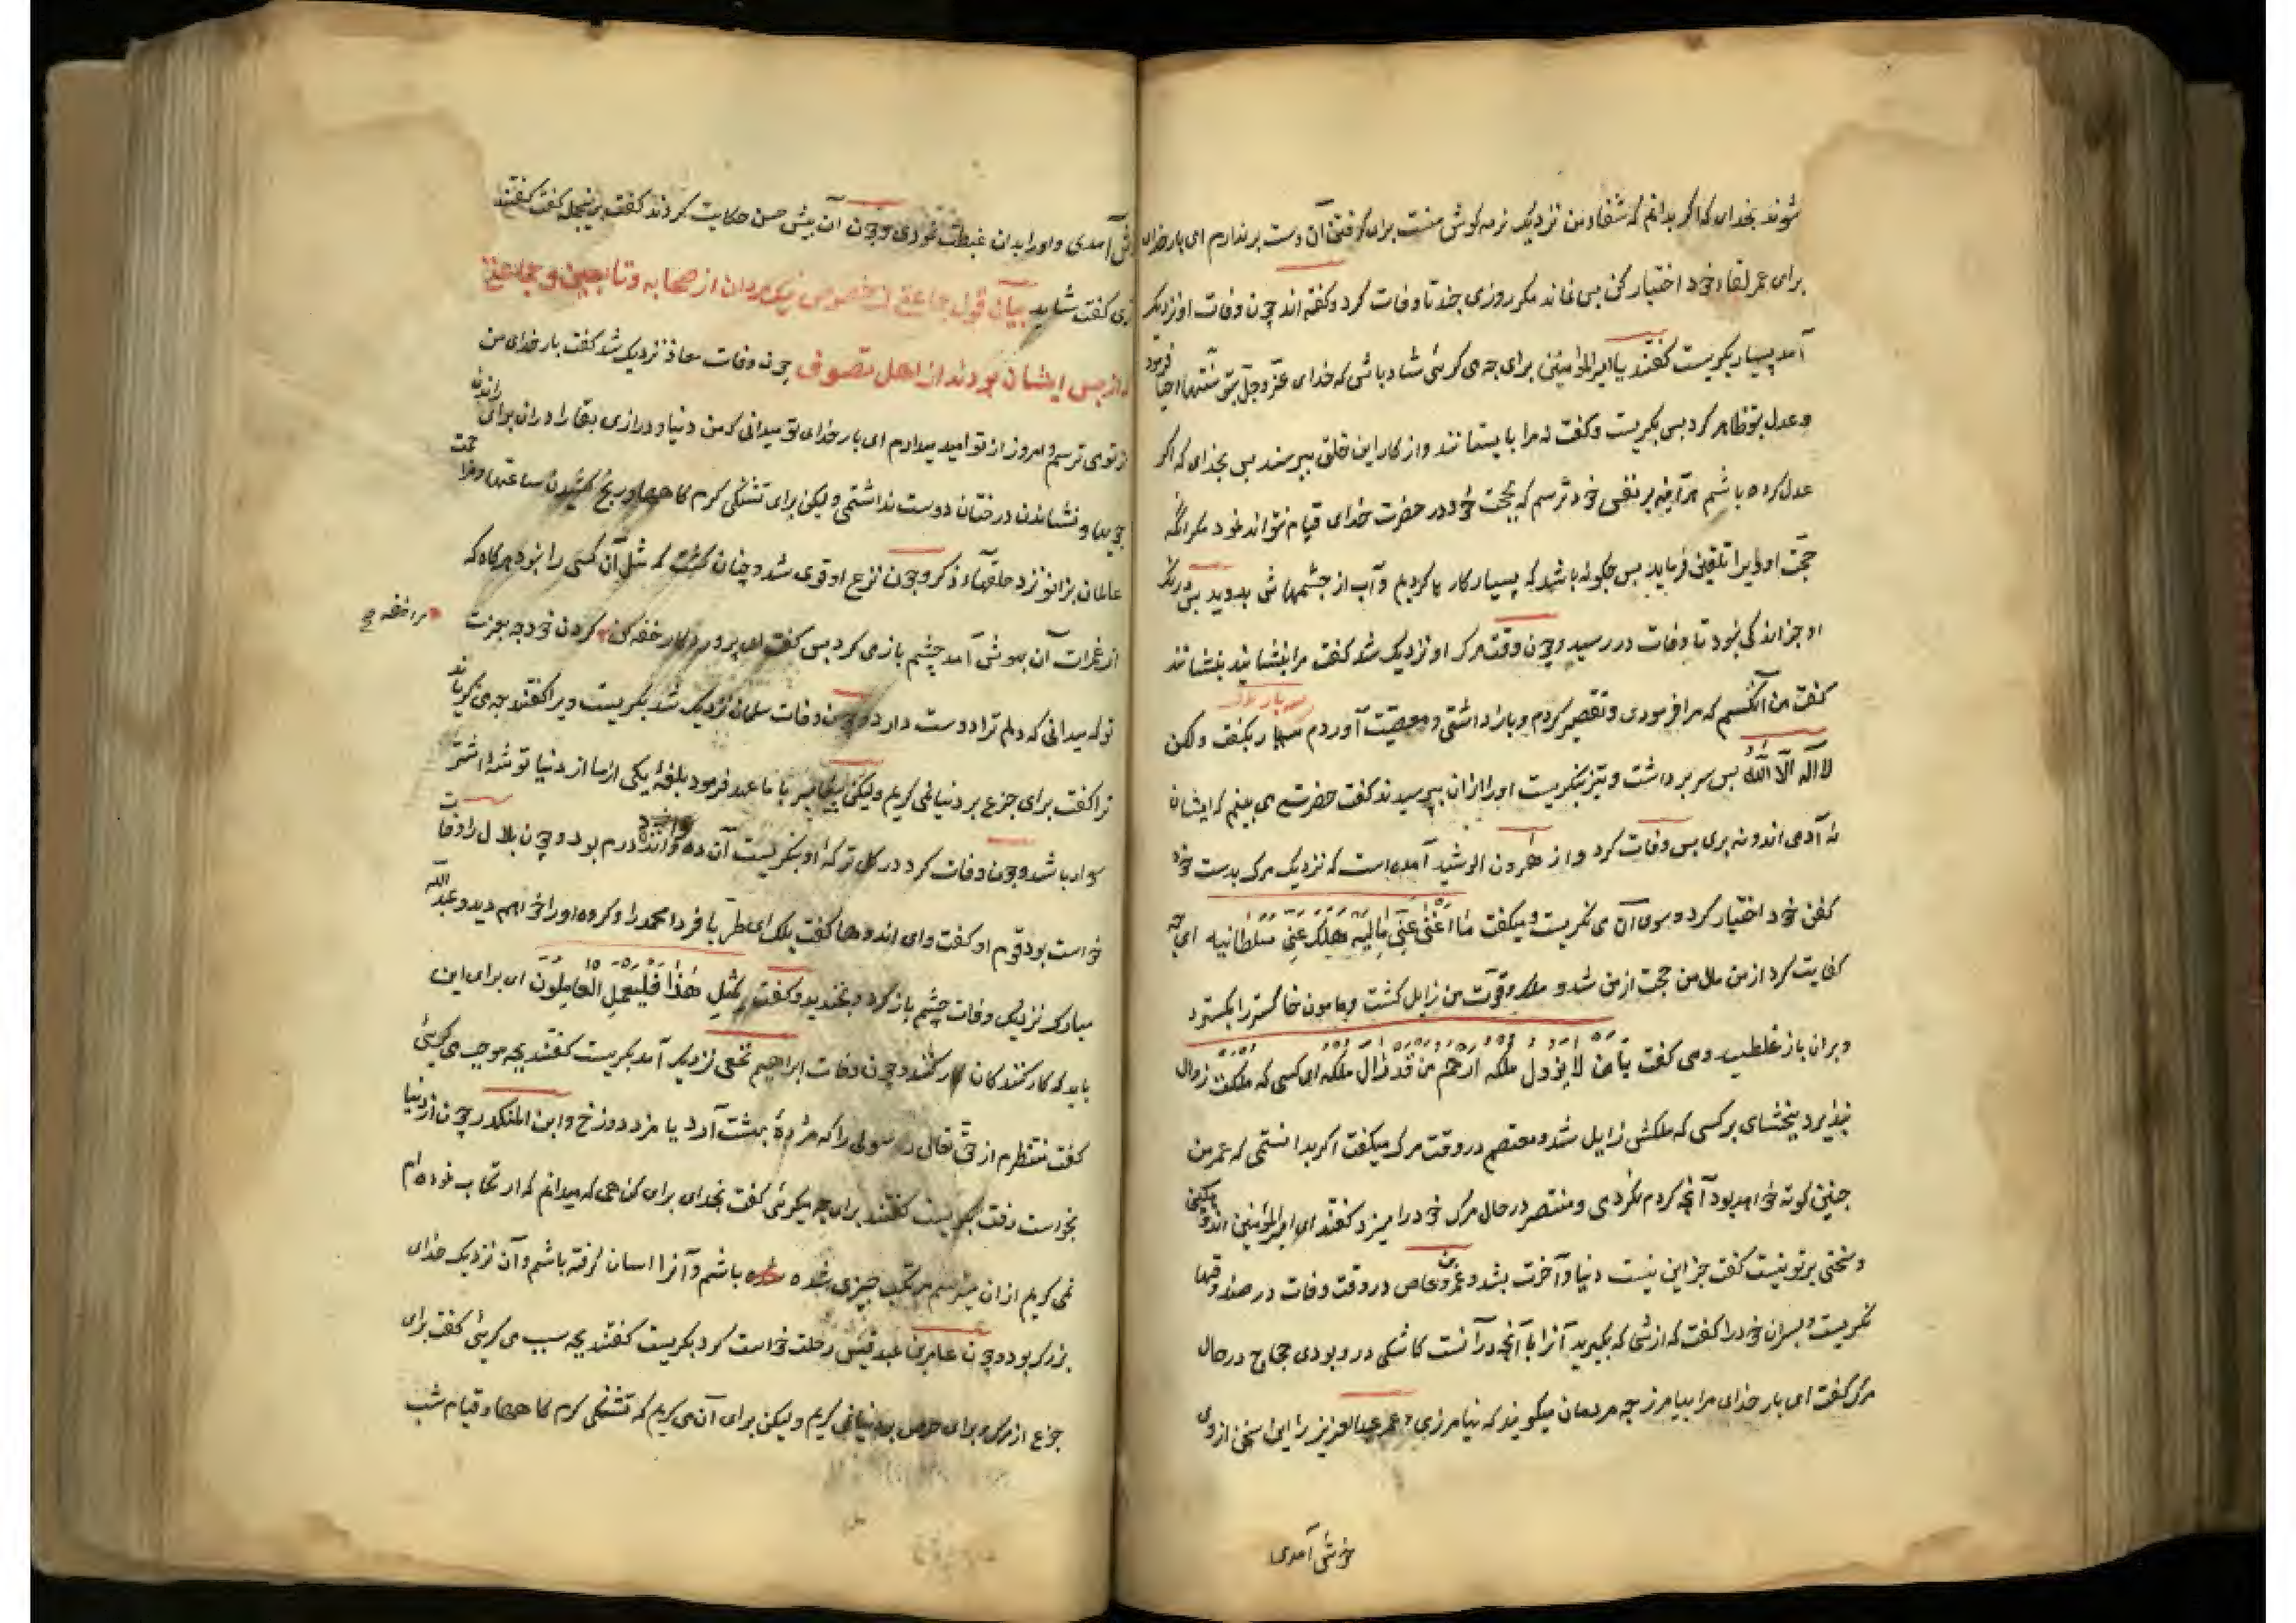 شوند بخدای که اگر بدانم که شفاء من نزدیک نرمه کوش منست برای کرفتن آن دست برندارم ای بار خدای
برای عمر لقاء خود اختیار کن پس نماند مکر روزی چند تا وفات کرد و کفته اند چون وفات او نزدیک
آمد بسیار بکریست کفتند یا امیرالمؤمنین برای چه می کرئی شاد باش که خدای عزّ و جلّ بتو سنّتها احیا فرمود
و عدل بتو ظاهر کرد پس بکریست و کفت نه مرا بایستانند و از کار این خلق بپرسند پس بخدای که اکر
عدل کرده باشم هرآینه بر نفس خود ترسم که بحجت خود در حضرت خدای قیام نتواند نمود مکر آنکه
حجّت او ویرا تلقین فرماید پس چکونه باشد که بسیار کار ها کردیم و آب از چشمهاش بدوید پس درنک
او جز اندکی نبود تا وفات در رسید و چون وقت مرک او نزدیک شد کفت مرا بنشانید بنشاندند
کفت من آنکسم که مرا فرمودی و تقصیر کردم و باز داشتی و معصیت آوردم سه بار بکفت ولکن
لا اله الّا اللّه پس سر برداشت و تیز بنکریست او را ازان بپرسیدند کفت حضرتی می بینم که ایشان
نه آدمی اند و نه پری پس وفات کرد و از هرون الرشید آمده است که نزدیک مرک بدست خود
کفن خود اختیار کرد و سوی آن می نکریست و میکفت مَا اَغْنی عَنِّی مَالِیَه هَلَکَ عَنِّی سُلطَانیه ای چه
کفایت کرد از من مال من حجت از من شد و ملک و قوّت من زایل کشت و مامون خاکستر را بکسترد
و بران باز غلطید و می کفت یا مَن لا یَزول ملکه اِرحَم مَن قَد زالَ ملکه ای کسی که ملکت زوال
نپذیرد ببخشای بر کسی که ملکش زایل شد و معتصم در وقت مرک میکفت اکر بدانستمی که عمر من
چنین کوته خواهد بود آنچه کردم نکردمی و منتصر در حال مرک خود را میزد کفتند ای امیرالمؤمنین
و سختی بر تو نیست کفت جز این نیست دنیا و آخرت بشد و عمرو عاص در وقت وفات در صندوقها
نکریست و پسران خود را کفت که از شما که بکیرید آنرا با آنچه در آنست کاشکی درو بودی حجاج در حال
مرک کفت ای بار خدای مرا بیامرز چه مردمان میکویند که نیامرزی و عمر عبدالعزیز را این سخن از وی
خوش آمدی
خوش آمدی و او را بدان غبطت نمودی و چون آن پیش حسن حکایت کردند کفت برینجمله کفت کفتند
آری کفت شاید بیان قول جماعتی از خصوص نیک مردان از صحابه و تابعین و جماعتی
که از پس ایشان بودند از اهل تصوف چون وفات معاذ نزدیک شد کفت بار خدای من
از تو می ترسم و امروز از تو امید میدارم ای بار خدای تو میدانی که من دنیا و درازی بقا را دران برای راندن
جویها و نشاندن درختان دوست نداشتمی ولیکن برای تشنکی کرم کاهها و رنج کشیدن ساعتها و مزاحمت
عالمان بزانو نزد حلقهاء ذکر و چون نزع او قوی شد و چنان کشت که مثل آن کسی را نبود هرکاه که
از غمرات آن بهوش آمد چشم باز می کرد پس کفت ای پروردکار خفه کن کردن خود چه بعزت
مرا خفه
تو که میدانی که دلم ترا دوست دارد و چون وفات سلمان نزدیک شد بکریست ویرا کفتند چه می کریاند
ترا کفت برای جزع بر دنیا نمی کریم ولیکن پیغامبر با ما عهد فرمود بلغهٔ یکی از ما از دنیا توشهٔ اشتر
سوار باشد و چون وفات کرد در کل ترکهٔ او بنکریست آن ده و اند درم بود و چون بلال را وفات
خواست بود قوم او کفت وای اندوها کفت بلک ای طربا فردا محمد را و کروه او را خواهم دید و عبد اللّه
مبارک نزدیک وفات چشم باز کرد و بخندید و کفت لِمِثْلِ هٰذا فَلْیَعْمَلِ الْعَامِلُون ای برای این
باید که کار کنندکان کار کنند و چون وفات ابراهیم نخعی نزدیک آمد بکریست کفتند بچه موجب می کریئ
کفت منتظرم از حق تعالی رسولی را که مژدهٔ بهشت آرد یا مزد دوزخ و ابن المنکدر چون از دنیا
بخواست رفت بکریست کفتند برای چه میکرئی کفت بخدای برای کناهی که میدانم که ارتکاب نموده ام
نمی کریم ازان میترسم مرتکب چیزی شده باشم و آنرا اسان کرفته باشم و آن نزدیک خدای
بزرک بود و چون عامر بن عبد قیس رحلت خواست کرد بکریست کفتند بچه سبب می کریئ کفت برای
جزع از مرک و برای حرص بر دنیا نمی کریم ولیکن برای آن می کریم که تشنکی کرم کاهها و قیام شب